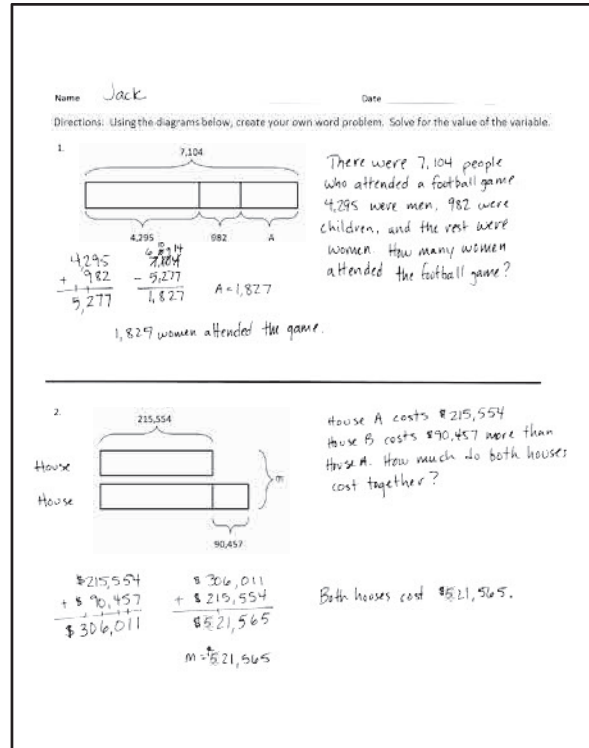 Name Jack Date
Directions: Using the diagrams below, create your own word problem. Solve for the value of the variable.
1.
7,104
4,295 982 A
There were 7,104 people
who attended a football game
4,295 were men, 982 were
children, and the rest were
women. How many women
attended the football game?
4,295
+ 982
5,277
7,104
- 5,277
1,827
A = 1,827
1,827 women attended the game.
2.
215,554
House
House
m
90,457
House A costs $215,554
House B costs $90,457 more than
House A. How much do both houses
cost together?
$215,554
+ $ 90,457
$306,011
$306,011
+ $215,554
$521,565
m = $521,565
Both houses cost $521,565.